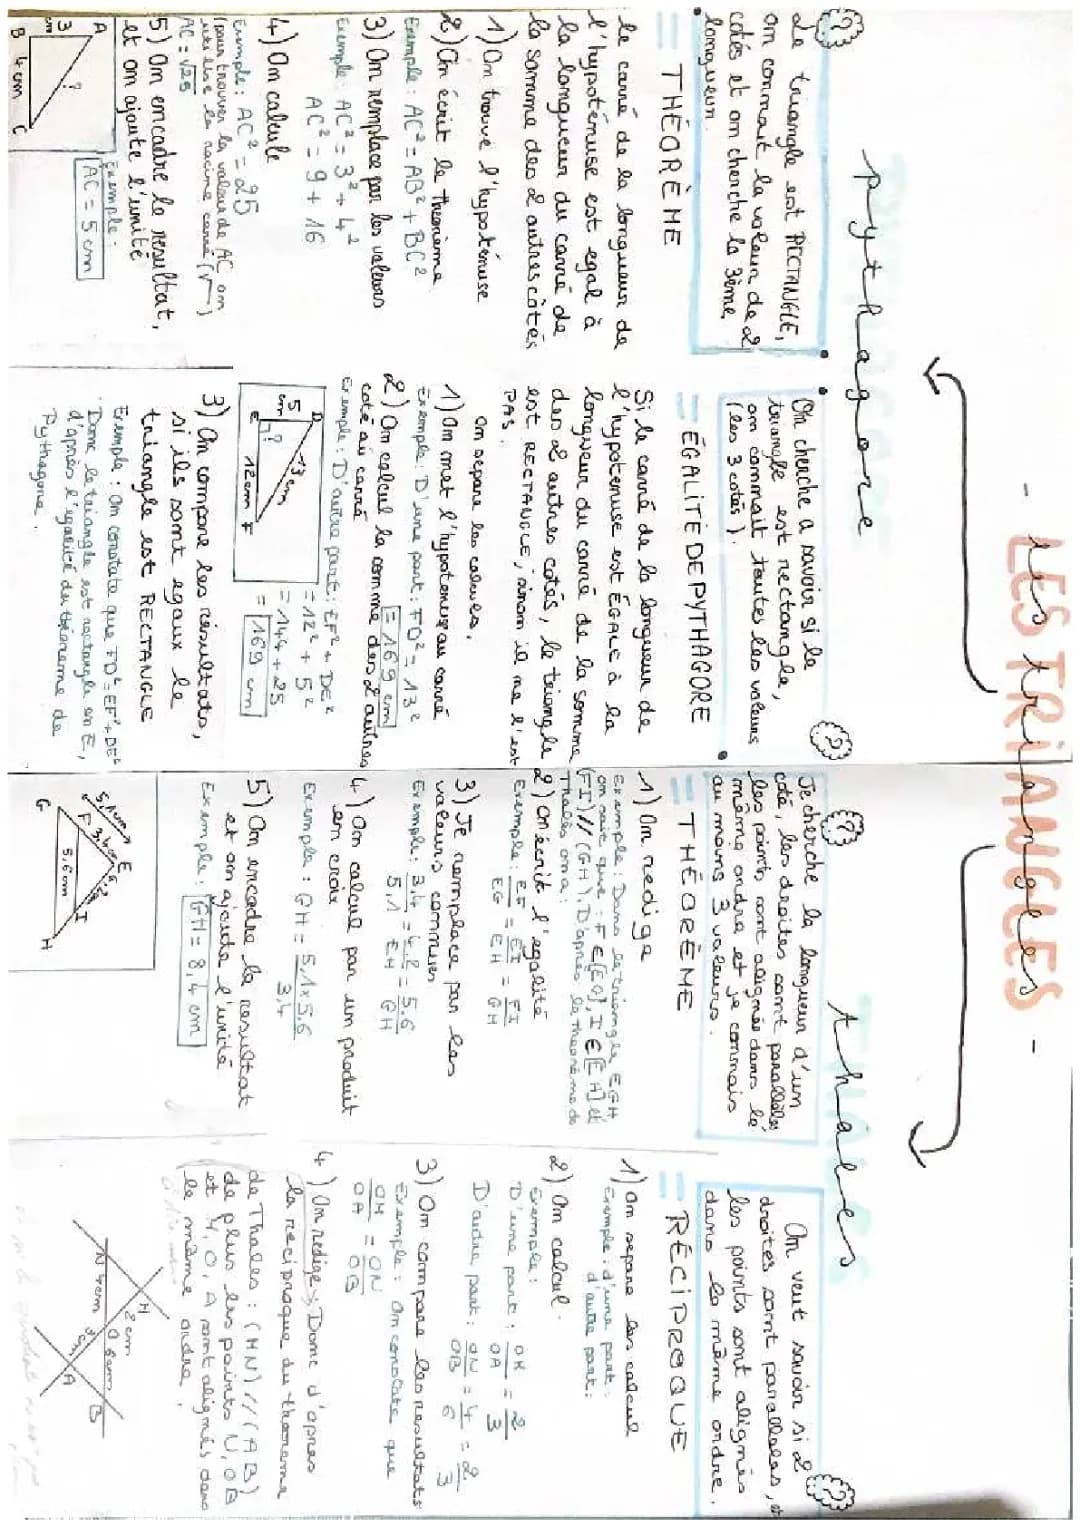 - LES TRIANGLES -
les triangles
Pythagore
Le triangle est RECTANGLE,
on connait la valeur de 2
cotés et on cherche la 3ème
longueur.
= THÉORÈME
le carré de la longueur de
l'hypoténuse est egal à
la longueur du carré de
la somme des 2 autres côtés
1) On trouve l'hypoténuse
2) On écrit le theorieme
Exemple: AC² = AB² + BC²
3) On remplace par les valeurs
Exemple: AC² = 3² + 4²
AC² = 9 + 16
4) On calcule
Exemple: AC² = 25
(pour trouver la valeur de AC on
utilise la racine carré (√)
AC = √25
5) On encadre le résultat,
et on ajoute l'unité
Exemple:
AC = 5 cm
A
3 cm
?
B 4 cm C
On cherche a savoir si le
triangle est rectangle,
on connait toutes les valeurs
(les 3 cotés).
= ÉGALITÉ DE PYTHAGORE
Si le carré de la longueur de
l'hypotenuse est ÉGALE à la
longueur du carré de la somme
des 2 autres cotés, le triangle
est RECTANGLE, sinon il ne l'est
PAS.
on separe les calculs.
1) On met l'hypotenuse au carré
Exemple: D'une part: FD² = 13²
= 169 cm
2) On calcul la somme des 2 autres
coté au carré
Exemple: D'autre part: EF² + DE²
= 12² + 5²
= 144 + 25
= 169 cm
D
5 cm
13 cm
?
E 12 cm F
3) On compare les résultats,
si ils sont egaux le
triangle est RECTANGLE
Exemple: On constate que FD² = EF² + DE²
Donc le triangle est rectangle en E,
d'après l'égalité du théoreme de
Pythagore.
thales
Je cherche la longueur d'un
coté, les droites sont parallèles
les points sont alignés dans le
même ordre et je connais
au moins 3 valeurs.
= THÉORÈME
1) On redige
Exemple: Dans le triangle EGH
on sait que: F ∈ [EG], I ∈ [EH] et
(FI) // (GH). D'après le théorème de
Thalès on a:
2) On écrit l'egalité
Exemple: EF/EG = EI/EH = FI/GH
3) Je remplace par les
valeurs connues
Exemple: 3,4/5,1 = 4,2/EH = 5,6/GH
4) On calcul par un produit
en croix
Exemple: GH = 5,1×5,6/3,4
5) On encadre le resultat
et on ajoute l'unité
Exemple: GH = 8,4 cm
E
5,1 cm
F
3,4 cm
4,2
I
5,6 cm
G
H
On veut savoir si 2
droites sont paralleles, et
les points sont alignés
dans le même ordre.
= RÉCIPROQUE
1) on separe les calcul
Exemple: d'une part:
d'autre part:
2) On calcul.
Exemple:
D'une part: OM/OA = 2/3
D'autre part: ON/OB = 4/6 = 2/3
3) On compare les resultats
Exemple: On constate que
OM/OA = ON/OB
4) On redige: Donc d'apres
la reciproque du theoreme
de Thales: (MN) // (AB)
de plus les points N, O B
et M, O, A sont alignés dans
le même ordre.
M
2 cm
N 4 cm O 6 cm B
3 cm
A